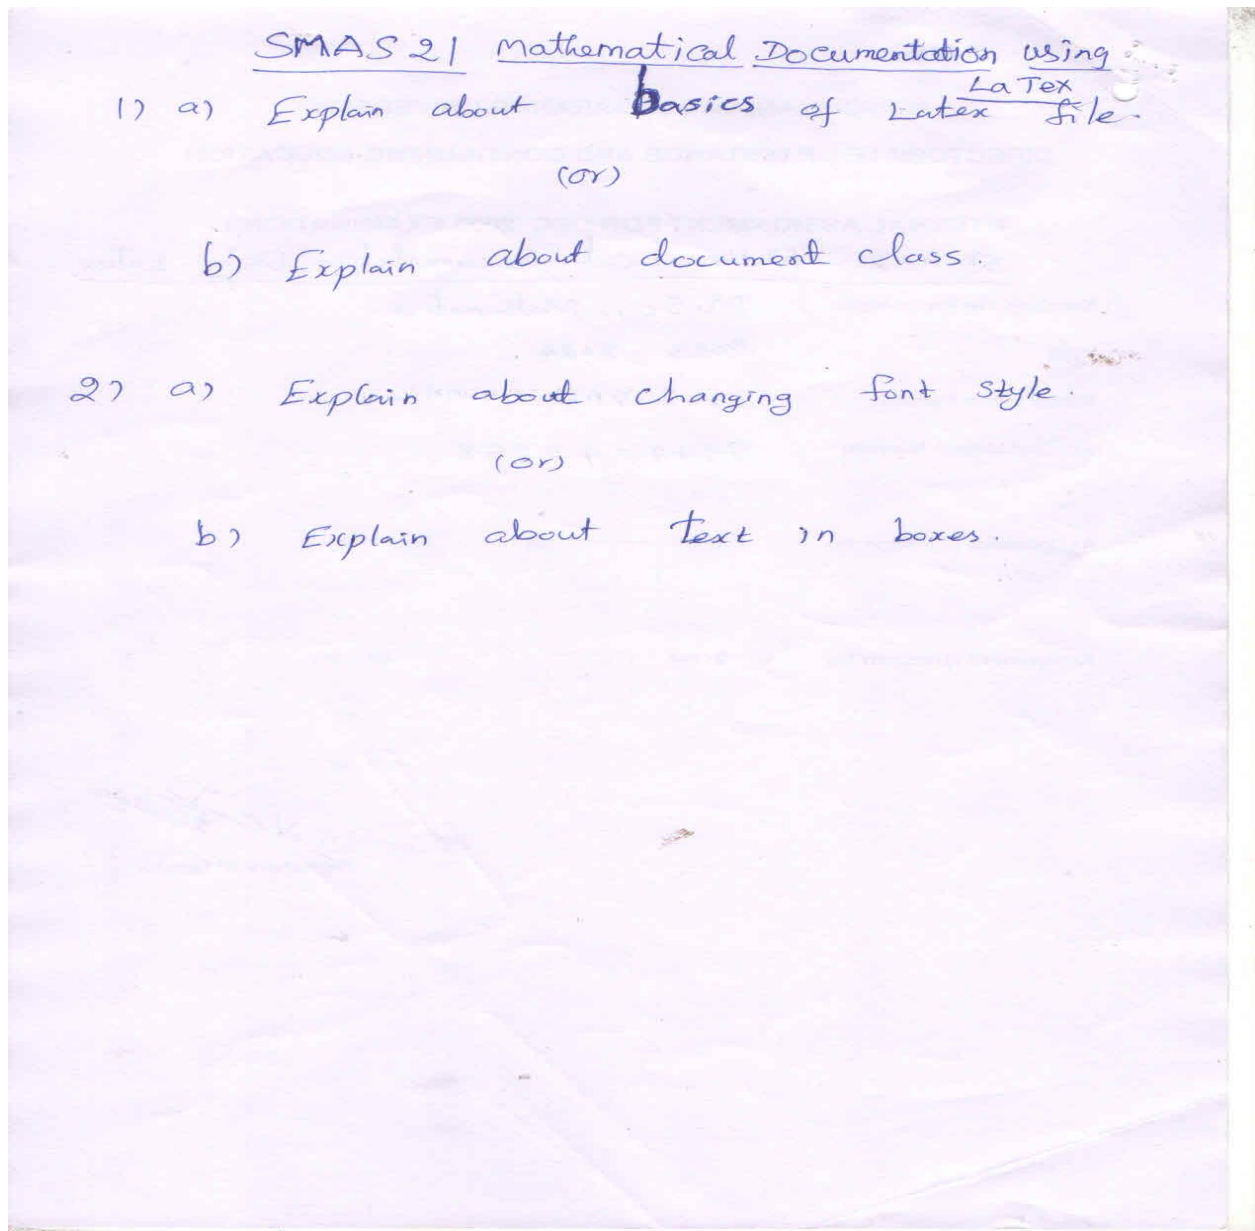 SMAS 21 Mathematical Documentation using
LaTex
1) a) Explain about basics of Latex file.
(or)
b) Explain about document class.
2) a) Explain about changing font style.
(or)
b) Explain about Text in boxes.